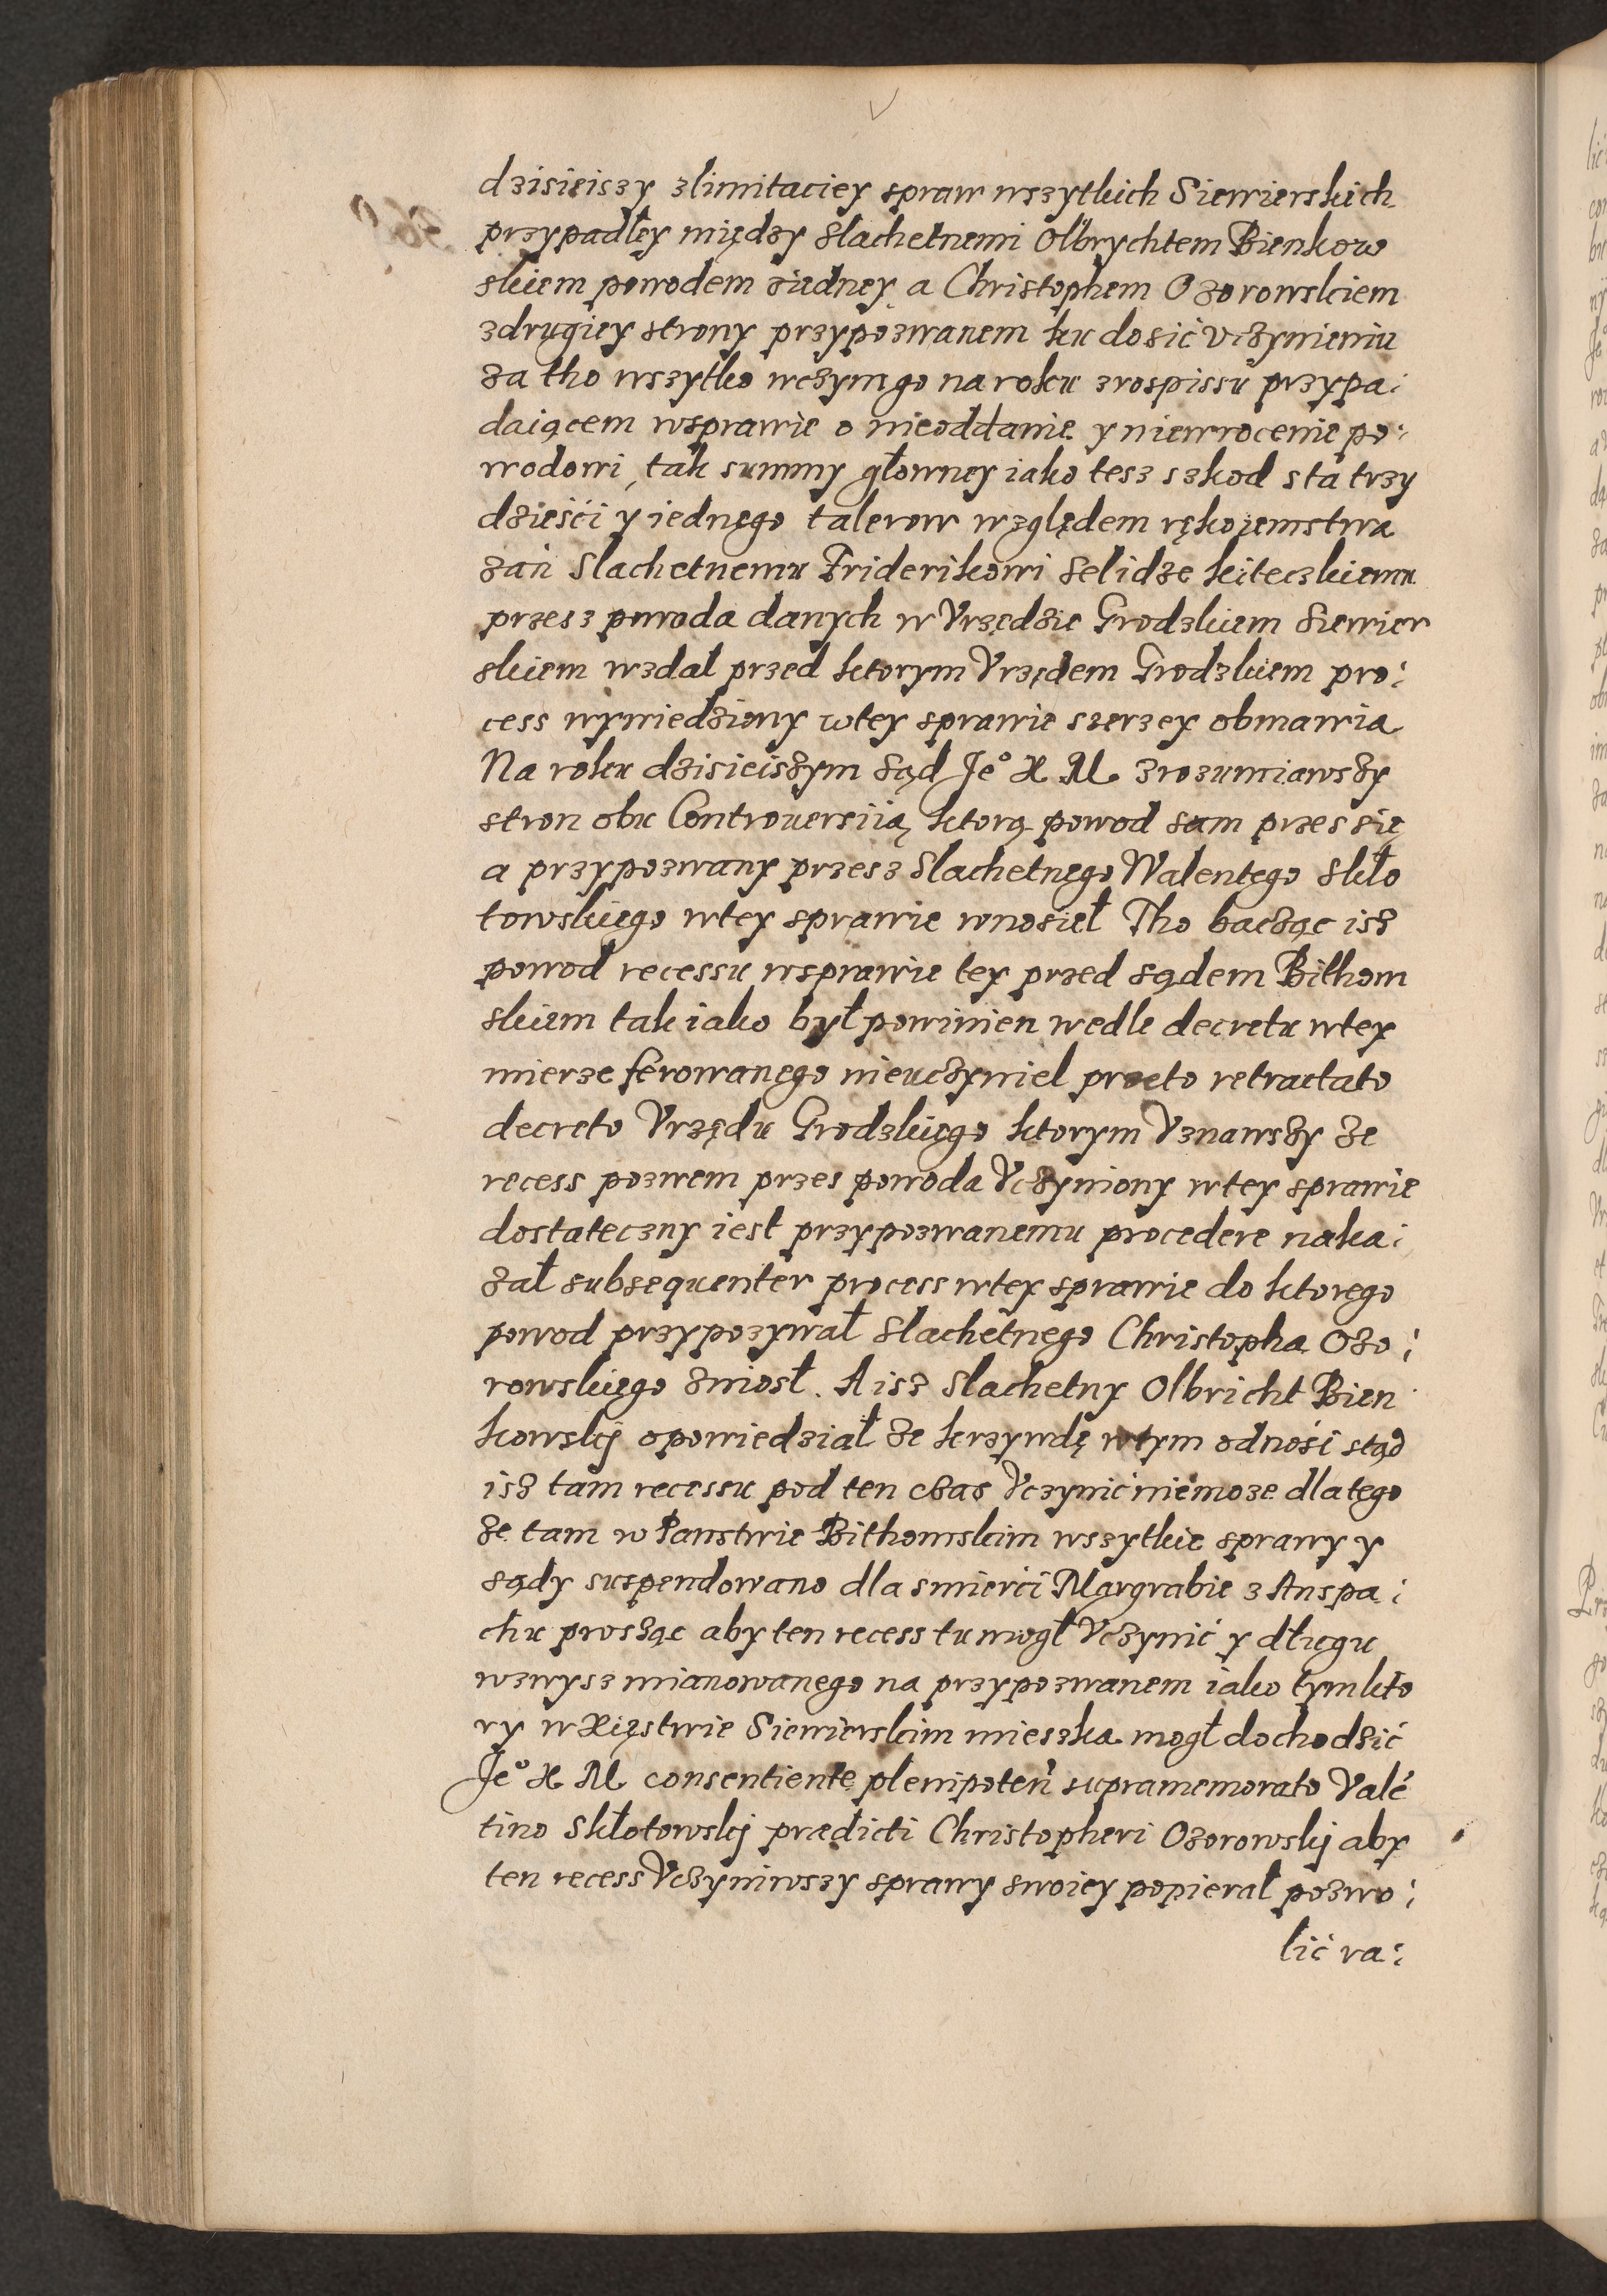 dzisieiszy zlimitaciey spraw wszytkich Siewierskich
przypadłey między Slachetnemi Olbrychtem Bienkow
skiem powodem ziedney a Christophem Ozorowskiem
zdrugiey strony przypozwanem ku dosić vczynieniu
za tho wszytko wczymgo na roku zrospissu przypa:
daiącem wsprawie o nieoddanie y niewrocenie po:
wodowi, tak summy głowney iako tesz szkod sta trzy
dzieści y iednego talerow względem rękoiemstwa
zań Slachetnemu Friderikowi Selidze kiteczkiemu
przesz powoda danych w Vrzędzie Grodzkiem Siewier
skiem wzdał przed ktorym Vrzędem Grodzkiem pro:
cess wywiedziony wtey sprawie szerzey obmawia
Na roku dzisieiszym Sąd Jeo X M. zrozumiawszy
stron obu Controuersiią ktorą powod sam przes się
a przypozwany przesz Slachetnego Walentego Skło
towskiego wtey sprawie wnosieł Tho bacząc isz
powod recessu wsprawie tey przed sądem Bithom
skiem tak iako był powinien wedle decretu wtey
mierze ferowanego nieuczyniel przeto retractato
decreto Vrzędu Grodzkiego ktorym Vznawszy że
recess pozwem przes powoda Vczyniony wtey sprawie
dostateczny iest przypozwanemu procedere naka:
zał subsequenter process wtey sprawie do ktorego
powod przypozywał Slachetnego Christopha Ozo:
rowskiego zniosł. A isz Slachetny Olbricht Bien
kowskij opowiedział że krzywdę wtym odnośi stąd
isz tam recessu pod ten czas Vczynić niemoże dlatego
że tam w Panstwie Bithomskim wszytkie sprawy y
sądy suspendowano dla smierći Margrabie z Anspa:
chu prosząc aby ten recess tu mogł Vczynić y długu
wzwysz mianowanego na przypozwanem iako tym kto
ry w Xięstwie Siewierskim mieszka mogł dochodzić
Jeo X M consentiente plenipoteń supramemorato Valē
tino Skłotowskij prædicti Christopheri Ozorowskij aby
ten recess Vczyniwszy sprawy swoiey popierał pozwo:
lić ra: